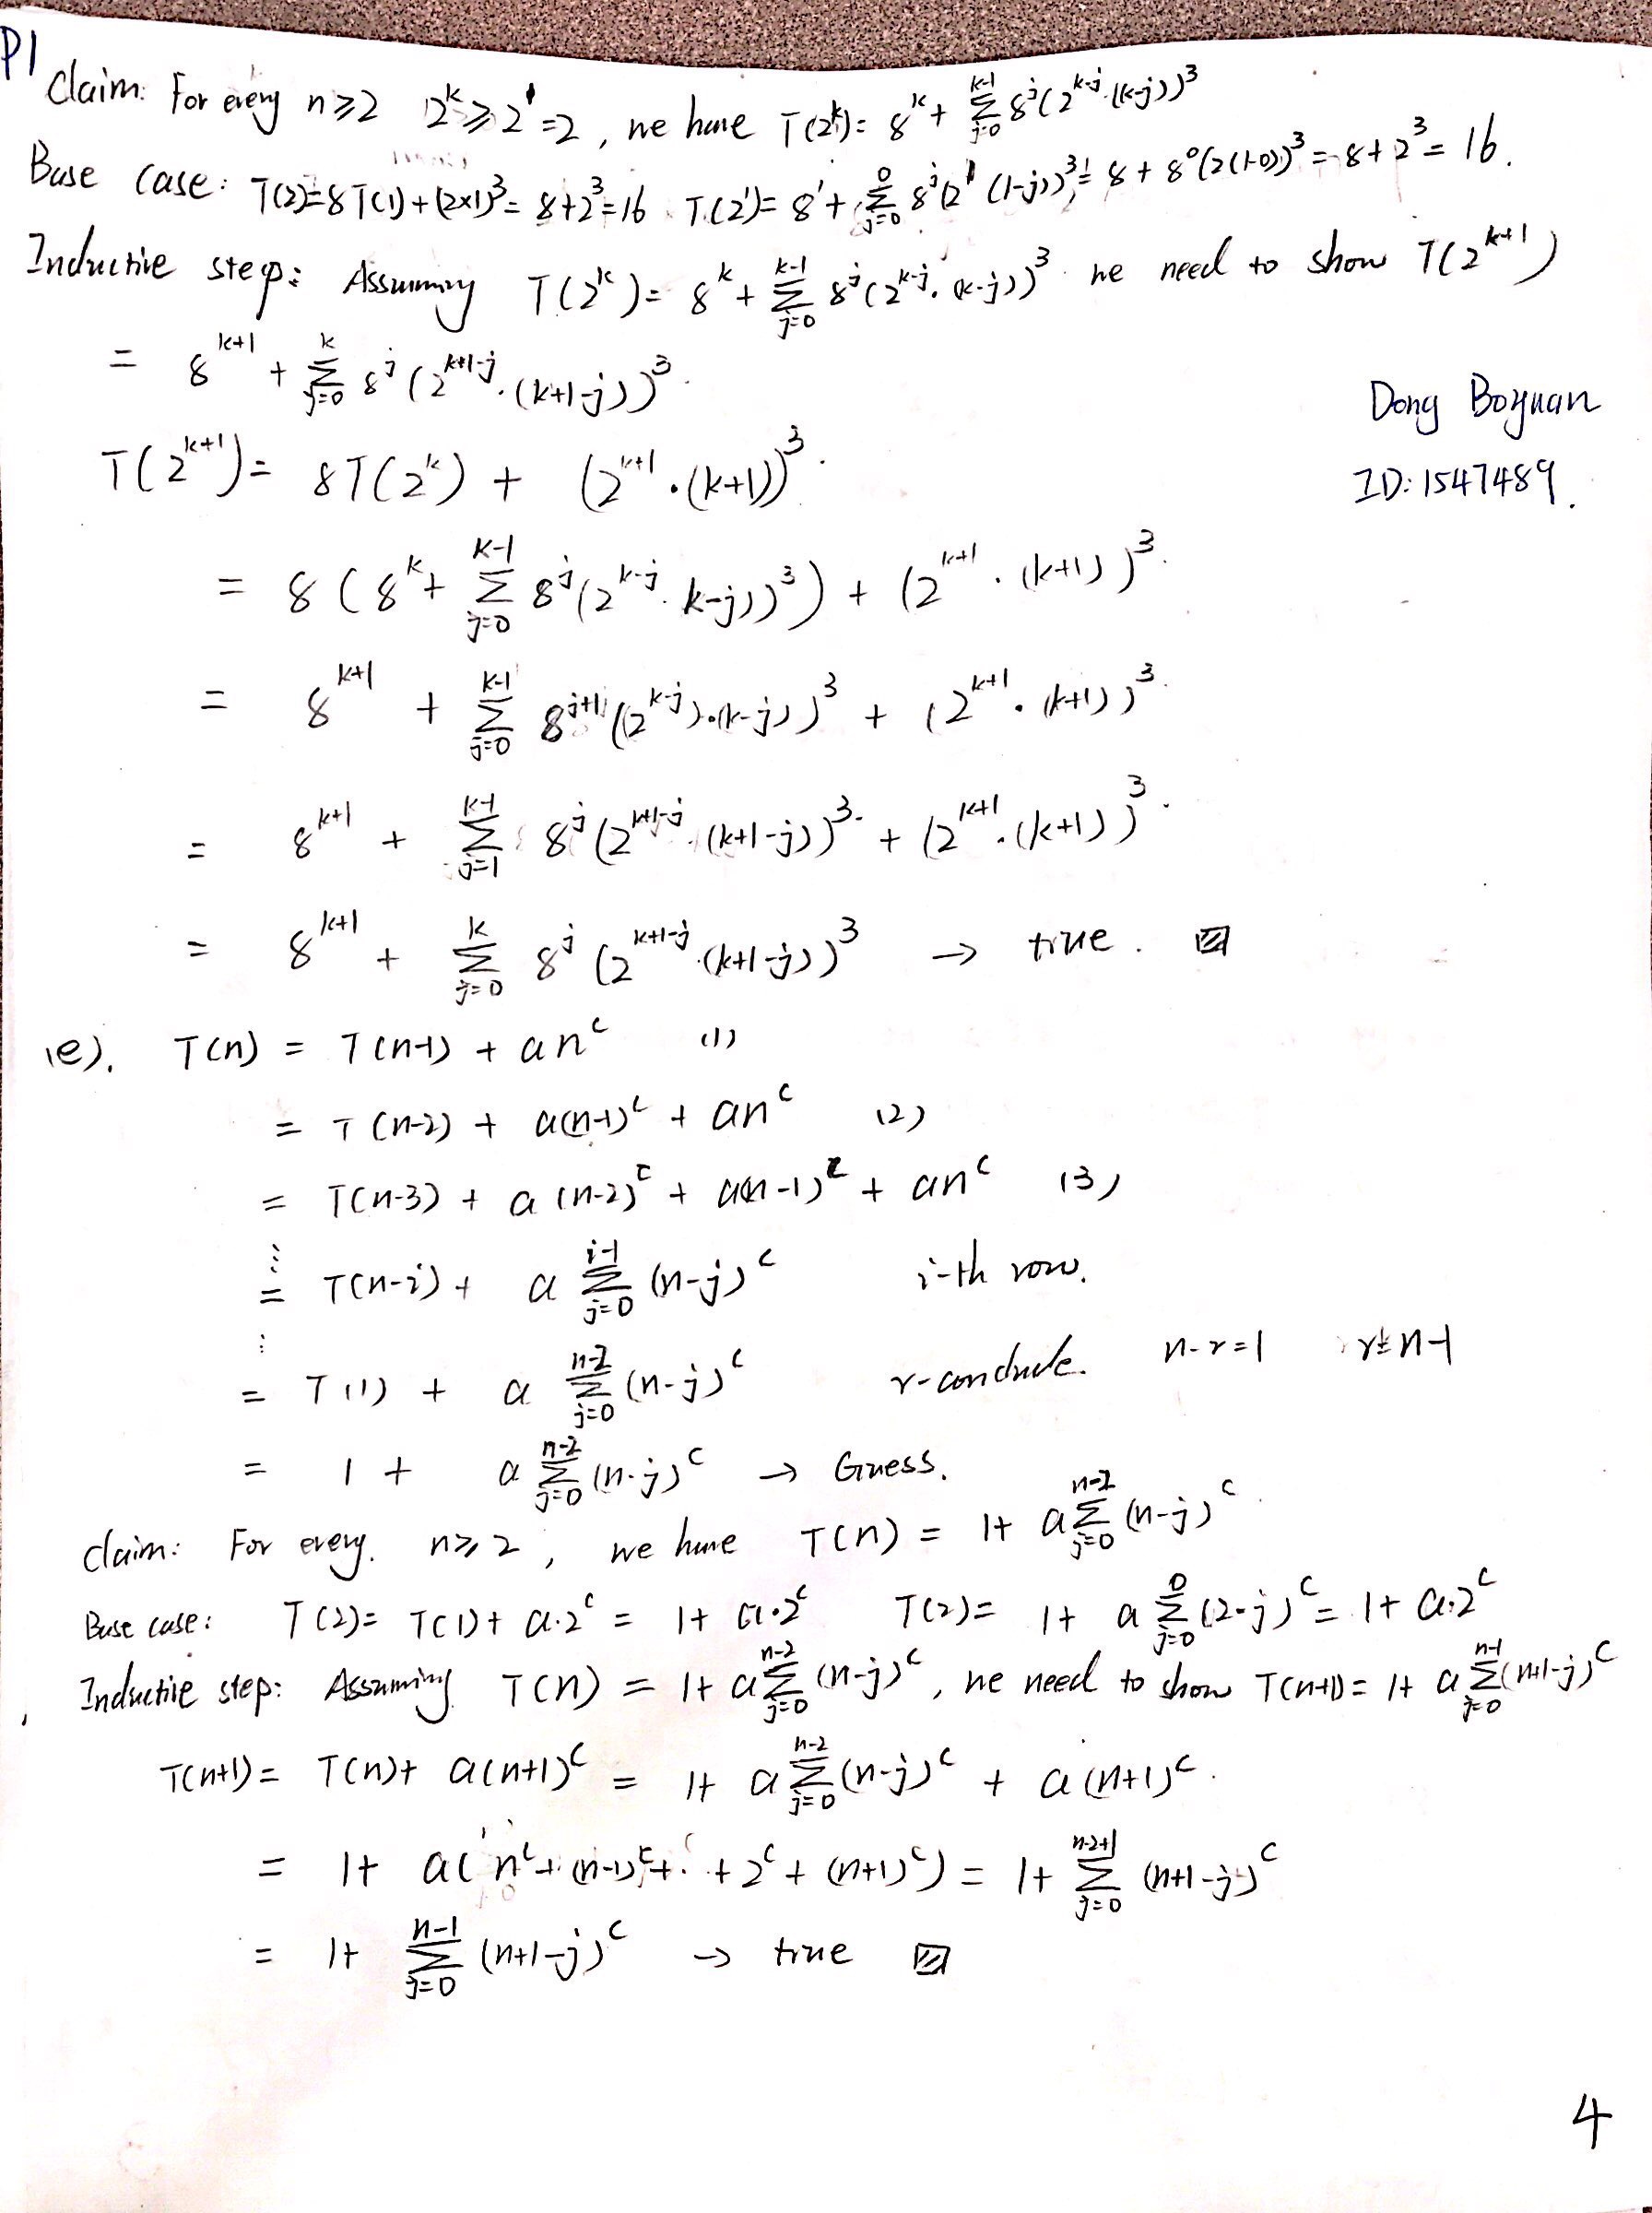 P1
Claim: For every n≥2 2^k ≥ 2^1 = 2, we have T(2^k) = 8^k + Σ_{j=0}^{k-1} 8^j (2^{k-j}·(k-j))^3
Base case: T(2) = 8T(1) + (2×1)^3 = 8+2^3 = 16 T(2^1) = 8^1 + Σ_{j=0}^{0} 8^j (2^1 (1-j))^3 = 8 + 8^0 (2(1-0))^3 = 8+2^3 = 16.
Inductive step: Assuming T(2^k) = 8^k + Σ_{j=0}^{k-1} 8^j (2^{k-j}·(k-j))^3 we need to show T(2^{k+1})
= 8^{k+1} + Σ_{j=0}^{k} 8^j (2^{k+1-j}·(k+1-j))^3.
Dong Boyuan
ID: 1547489.
T(2^{k+1}) = 8T(2^k) + (2^{k+1}·(k+1))^3.
= 8(8^k + Σ_{j=0}^{k-1} 8^j (2^{k-j}·k-j))^3) + (2^{k+1}·(k+1))^3.
= 8^{k+1} + Σ_{j=0}^{k-1} 8^{j+1} ((2^{k-j})·(k-j))^3 + (2^{k+1}·(k+1))^3.
= 8^{k+1} + Σ_{j=1}^{k-1} 8^j (2^{k+1-j}·(k+1-j))^3 + (2^{k+1}·(k+1))^3.
= 8^{k+1} + Σ_{j=0}^{k} 8^j (2^{k+1-j}·(k+1-j))^3 → true.
(e). T(n) = T(n-1) + an^c (1)
= T(n-2) + a(n-1)^c + an^c (2)
= T(n-3) + a(n-2)^c + a(n-1)^c + an^c (3)
⋮
= T(n-i) + a Σ_{j=0}^{i-1} (n-j)^c i-th row.
⋮
= T(1) + a Σ_{j=0}^{n-2} (n-j)^c r-conclude. n-r=1 r=n-1
= 1 + a Σ_{j=0}^{n-2} (n-j)^c → Guess.
Claim: For every. n≥2, we have T(n) = 1+ a Σ_{j=0}^{n-2} (n-j)^c.
Base case: T(2) = T(1) + a·2^c = 1+ a·2^c T(2) = 1+ a Σ_{j=0}^{0} (2-j)^c = 1+ a·2^c
Inductive step: Assuming T(n) = 1+ a Σ_{j=0}^{n-2} (n-j)^c, we need to show T(n+1) = 1+ a Σ_{j=0}^{n-1} (n+1-j)^c
T(n+1) = T(n) + a(n+1)^c = 1+ a Σ_{j=0}^{n-2} (n-j)^c + a(n+1)^c.
= 1+ a(n^c + (n-1)^c + ·· + 2^c + (n+1)^c) = 1+ Σ_{j=0}^{n-2+1} (n+1-j)^c
= 1+ Σ_{j=0}^{n-1} (n+1-j)^c → true
4